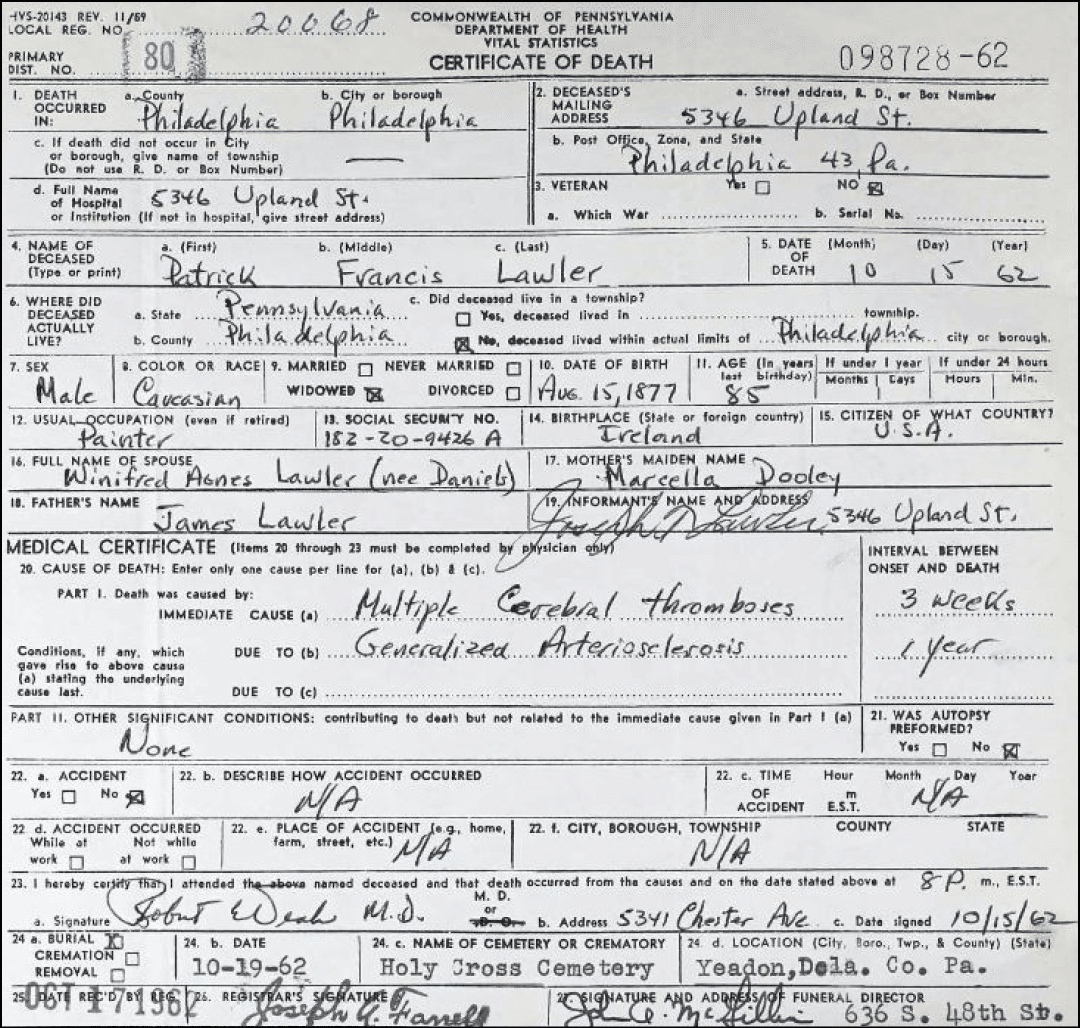 HVS-20143 REV. 11/69
LOCAL REG. NO. 20068
PRIMARY DIST. NO. 80
COMMONWEALTH OF PENNSYLVANIA
DEPARTMENT OF HEALTH
VITAL STATISTICS
CERTIFICATE OF DEATH
098728-62
1. DEATH OCCURRED IN: a. County Philadelphia b. City or borough Philadelphia
c. If death did not occur in City or borough, give name of township (Do not use R. D. or Box Number) —
d. Full Name of Hospital or Institution (If not in hospital, give street address) 5346 Upland St.
2. DECEASED'S MAILING ADDRESS a. Street address, R. D., or Box Number 5346 Upland St.
b. Post Office, Zone, and State Philadelphia 43, Pa.
3. VETERAN Yes ☐ NO ☒
a. Which War b. Serial No.
4. NAME OF DECEASED (Type or print) a. (First) Patrick b. (Middle) Francis c. (Last) Lawler
5. DATE OF DEATH (Month) 10 (Day) 15 (Year) 62
6. WHERE DID DECEASED ACTUALLY LIVE? a. State Pennsylvania
b. County Philadelphia
c. Did deceased live in a township?
☐ Yes, deceased lived in township.
☒ No, deceased lived within actual limits of Philadelphia city or borough.
7. SEX Male
8. COLOR OR RACE Caucasian
9. MARRIED ☐ NEVER MARRIED ☐
WIDOWED ☒ DIVORCED ☐
10. DATE OF BIRTH Aug. 15, 1877
11. AGE (In years last birthday) 85
If under 1 year Months Days
If under 24 hours Hours Min.
12. USUAL OCCUPATION (even if retired) Painter
13. SOCIAL SECURITY NO. 182-20-9426 A
14. BIRTHPLACE (State or foreign country) Ireland
15. CITIZEN OF WHAT COUNTRY? U.S.A.
16. FULL NAME OF SPOUSE Winifred Agnes Lawler (nee Daniels)
17. MOTHER'S MAIDEN NAME Marcella Dooley
18. FATHER'S NAME James Lawler
19. INFORMANT'S NAME AND ADDRESS Joseph Lawler 5346 Upland St.
MEDICAL CERTIFICATE (Items 20 through 23 must be completed by physician only)
INTERVAL BETWEEN ONSET AND DEATH
20. CAUSE OF DEATH: Enter only one cause per line for (a), (b) & (c).
PART I. Death was caused by:
IMMEDIATE CAUSE (a) Multiple Cerebral Thromboses 3 weeks
Conditions, if any, which gave rise to above cause (a) stating the underlying cause last.
DUE TO (b) Generalized Arteriosclerosis 1 year
DUE TO (c)
PART II. OTHER SIGNIFICANT CONDITIONS: contributing to death but not related to the immediate cause given in Part I (a)
None
21. WAS AUTOPSY PREFORMED?
Yes ☐ No ☒
22. a. ACCIDENT Yes ☐ No ☒
22. b. DESCRIBE HOW ACCIDENT OCCURRED N/A
22. c. TIME OF ACCIDENT Hour m E.S.T. Month Day Year N/A
22 d. ACCIDENT OCCURRED While at work ☐ Not while at work ☐
22. e. PLACE OF ACCIDENT (e.g., home, farm, street, etc.) N/A
22. f. CITY, BOROUGH, TOWNSHIP COUNTY STATE N/A
23. I hereby certify that I attended the above named deceased and that death occurred from the causes and on the date stated above at 8 P. m., E.S.T.
a. Signature Robert M.D. M. D. or D. O. b. Address 5341 Chester Ave. c. Date signed 10/15/62
24 a. BURIAL ☒
CREMATION ☐
REMOVAL ☐
24. b. DATE 10-19-62
24. c. NAME OF CEMETERY OR CREMATORY Holy Cross Cemetery
24. d. LOCATION (City, Boro., Twp., & County) (State) Yeadon,Dela. Co. Pa.
25. DATE REC'D BY REG. OCT 17 1962
26. REGISTRAR'S SIGNATURE Joseph A. Farrell
27. SIGNATURE AND ADDRESS OF FUNERAL DIRECTOR John A. McGillin 636 S. 48th St.